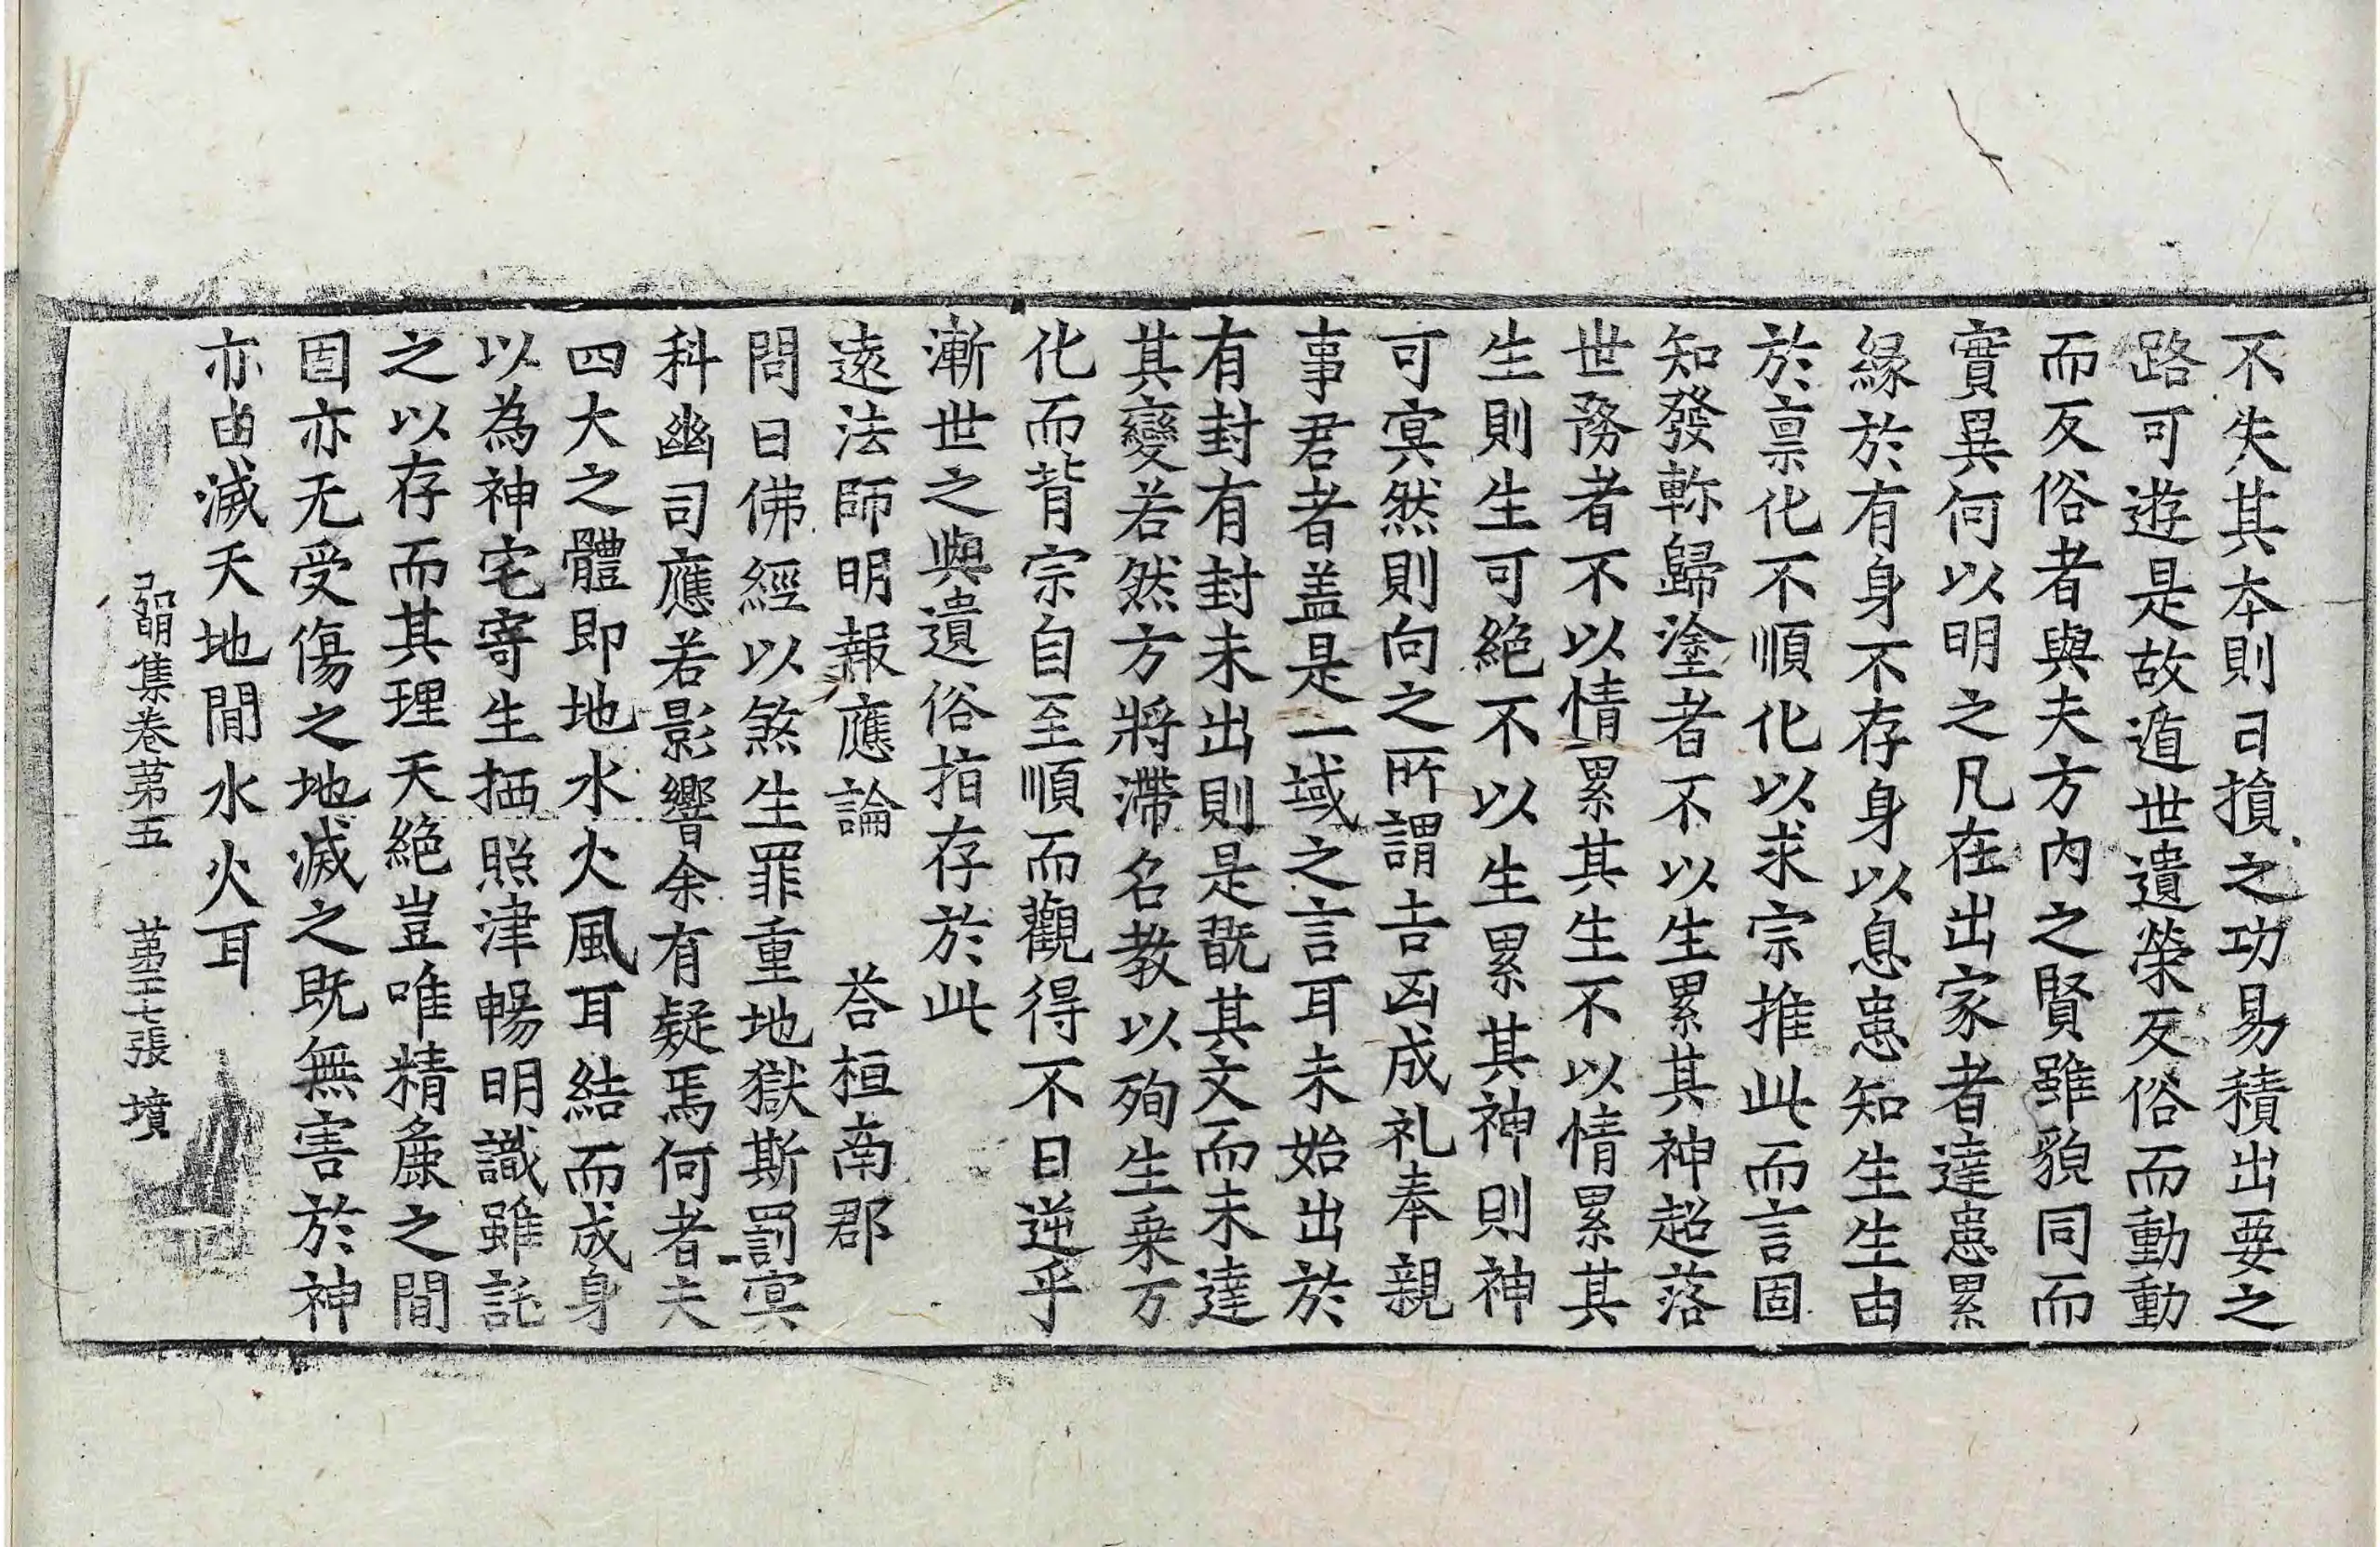 不失其本則日損之功易積出要之
路可遊是故遁世遺榮反俗而動動
而反俗者與夫方內之賢雖貌同而
實異何以明之凡在出家者達患累
緣於有身不存身以息患知生生由
於禀化不順化以求宗推此而言固
知發軫歸塗者不以生累其神超落
世務者不以情累其生不以情累其
生則生可絕不以生累其神則神
可寞然則向之所謂吉凶成礼奉親
事君者盖是一域之言耳未始出於
有封有封未出則是翫其文而未達
其變若然方將滯名教以殉生乘万
化而背宗自至順而觀得不曰逆乎
漸世之與遺俗指存於此
遠法師明報應論 荅桓南郡
問曰佛經以煞生罪重地獄斯罰寞
科幽司應若影響余有疑焉何者夫
四大之體即地水火風耳結而成身
以為神宅寄生栖照津暢明識雖託
之以存而其理天絕豈唯精麁之間
固亦无受傷之地滅之既無害於神
亦由滅天地間水火耳
弘明集卷第五 第二七張 墳